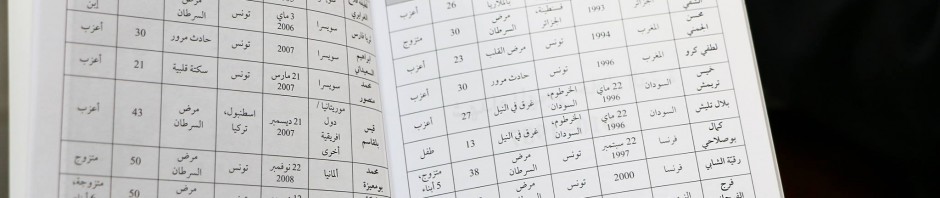 بالملاريا 26 أعزب
الجزائر 1993 قسنطينة، مرض 30 متزوج
الجزائر السرطان
محسن المغرب 1994 تونس مرض القلب 23 أعزب
الحمسي
لطفي كرو المغرب 1996 تونس حادث مرور 30 أعزب
خميس السودان 22 ماي الخرطوم، غرق في النيل 27 أعزب
تريمش 1996 السودان
بلال تليش السودان 22 ماي الخرطوم، غرق في النيل 13 طفل
1996 السودان
كمال فرنسا 22 سبتمبر تونس مرض 38 متزوج،
بوصلاحي 1997 السرطان 5 أبناء
رقية الشابي فرنسا 2000 تونس مرض
فرج
الغرايري
ثريا فارس سويسرا 3 ماي تونس مرض
2006 السرطان
ابراهيم سويسرا 2007 تونس حادث مرور 30 أعزب
السعيداني
محمد سويسرا 21 مارس تونس سكتة قلبية 21 أعزب
منصور 2007
قيس موريتانيا / 21 ديسمبر اسطنبول، مرض 43 أعزب
بلقاسم دول 2007 تركيا السرطان
افريقية
أخرى
محمد ألمانيا 22 نوفمبر تونس مرض 50 متزوج
بومعيزة 2008 السرطان
مرض 50 متزوجة،